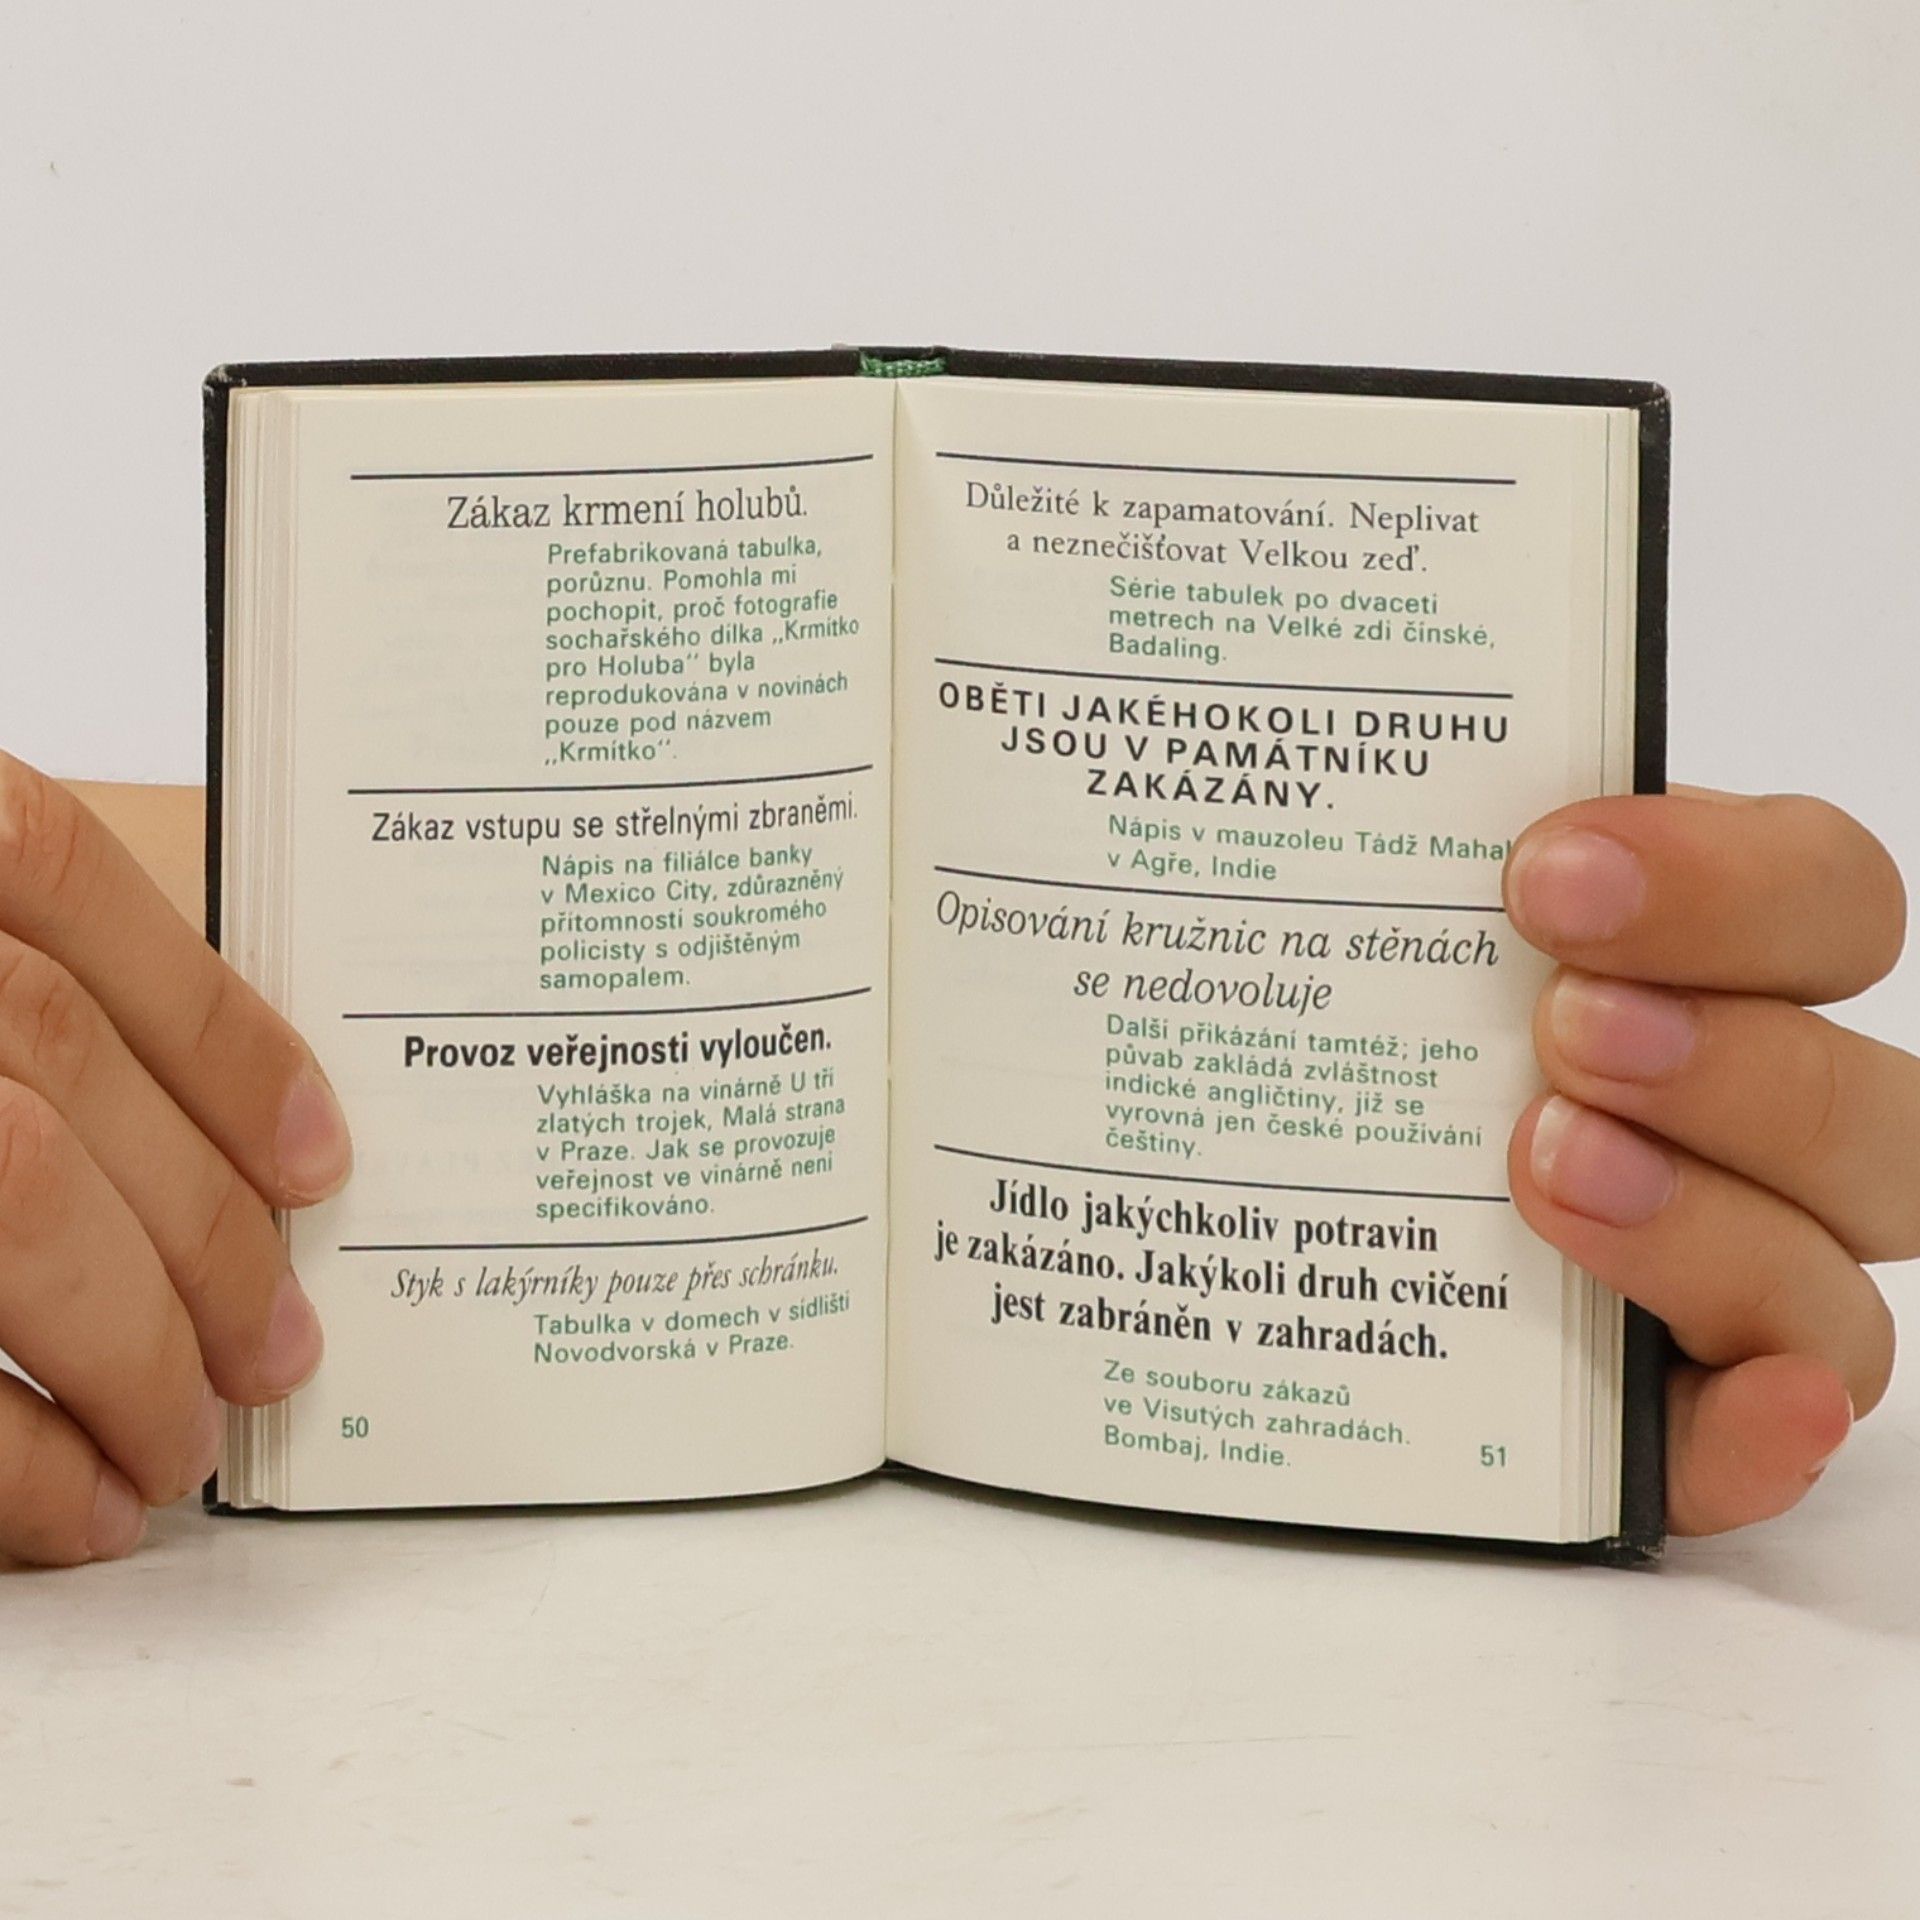 Zákaz krmení holubů.
Prefabrikovaná tabulka,
porůznu. Pomohla mi
pochopit, proč fotografie
sochařského dílka „Krmítko
pro Holuba“ byla
reprodukována v novinách
pouze pod názvem
„Krmítko“.
Zákaz vstupu se střelnými zbraněmi.
Nápis na filiálce banky
v Mexico City, zdůrazněný
přítomností soukromého
policisty s odjištěným
samopalem.
Provoz veřejnosti vyloučen.
Vyhláška na vinárně U tří
zlatých trojek, Malá strana
v Praze. Jak se provozuje
veřejnost ve vinárně není
specifikováno.
Styk s lakýrníky pouze přes schránku.
Tabulka v domech v sídlišti
Novodvorská v Praze.
50
Důležité k zapamatování. Neplivat
a neznečišťovat Velkou zeď.
Série tabulek po dvaceti
metrech na Velké zdi čínské,
Badaling.
OBĚTI JAKÉHOKOLI DRUHU
JSOU V PAMÁTNÍKU
ZAKÁZÁNY.
Nápis v mauzoleu Tádž Mahal
v Agře, Indie
Opisování kružnic na stěnách
se nedovoluje
Další přikázání tamtéž; jeho
půvab zakládá zvláštnost
indické angličtiny, jíž se
vyrovná jen české používání
češtiny.
Jídlo jakýchkoliv potravin
je zakázáno. Jakýkoli druh cvičení
jest zabráněn v zahradách.
Ze souboru zákazů
ve Visutých zahradách.
Bombaj, Indie.
51